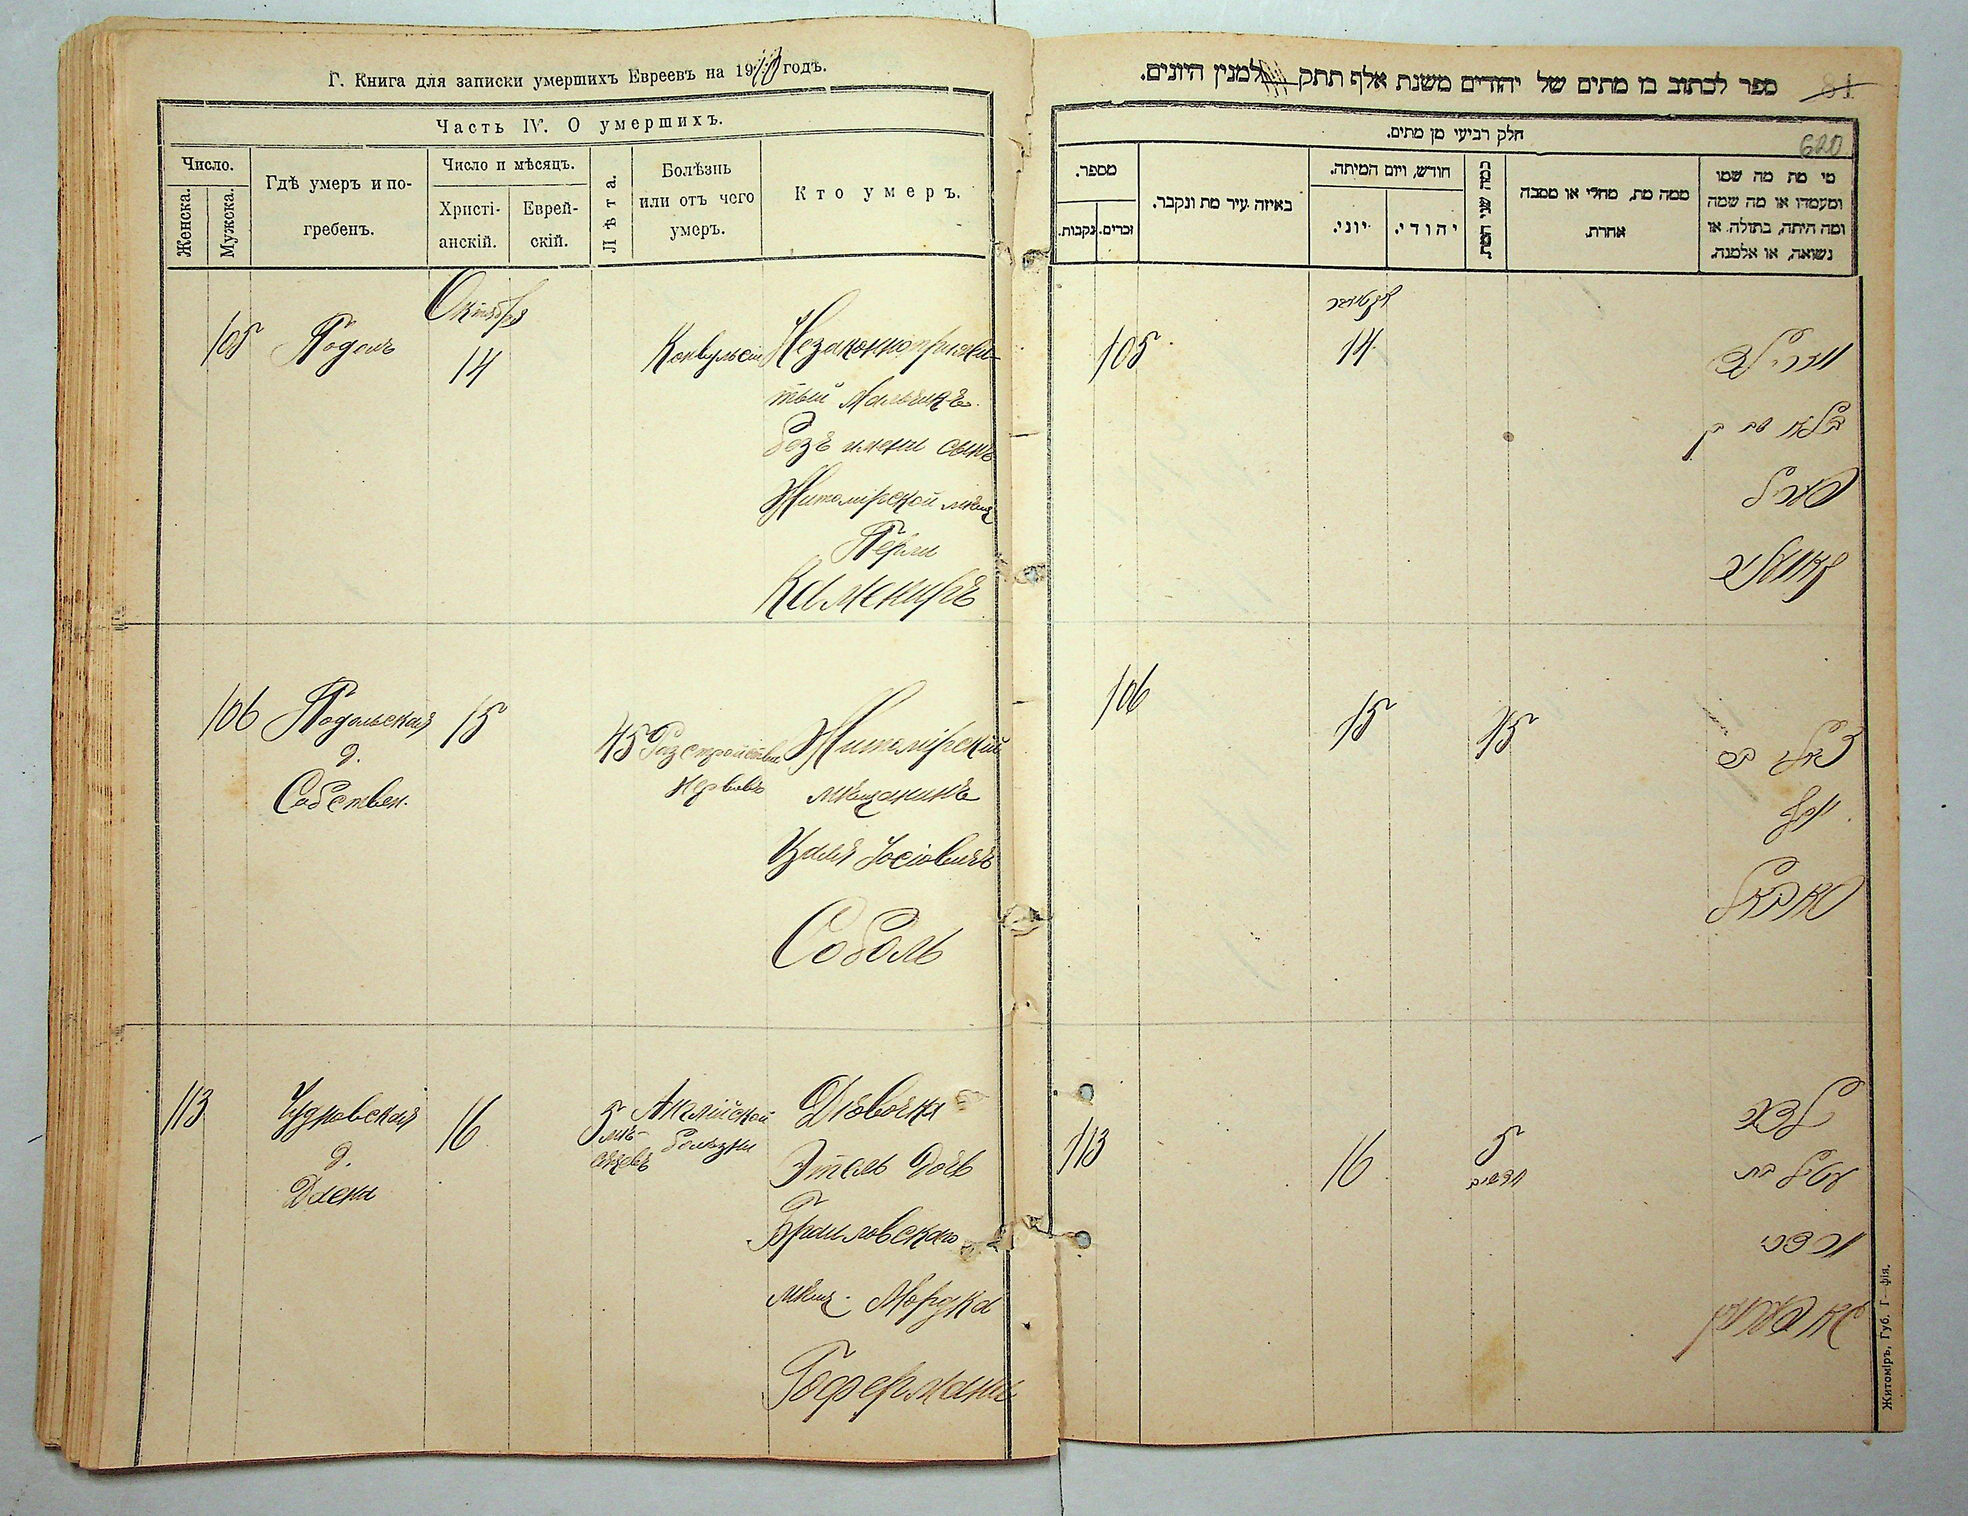 Г. Книга для записки умершихъ Евреевъ на 1910 годъ.
Часть IV. О умершихъ.
Число.
Женска.
Мужска.
Гдѣ умеръ и по-
гребенъ.
Число и мѣсяцъ.
Христі-
анскій.
Еврей-
скій.
Лѣта.
Болѣзнь
или отъ чего
умеръ.
Кто умеръ.
Октября
105
Подоль
14
Конвульсіи
Незаконноприжи-
тый мальчикъ
безъ имени сынъ
Житомірской мѣщ
Перли
Камениръ
106
Подольская
д.
Собствен.
15
45
Разстройства
нервовъ
Житомірскій
мѣщанинъ
Іосіовичъ
Соболь
113
Чудновская
д.
16
5
мѣ-
сяцевъ
Англійской
болѣзни
Дѣвочка
Этель дочь
Браиловскаго
мѣщ. Мордка
Гоферманъ
ספר לכתוב בו מתים של יהודים משנת אלף תתק למנין היונים.
81
620
חלק רביעי מן מתים.
מספר.
נקבות.
זכרים.
באיזה עיר מת ונקבר.
חודש, ויום המיתה.
יוני.
יהודי.
כמה שני המת
ממה מת, מחלי או מסבה
אחרת.
מי מת מה שמו
ומעמדו או מה שמה
ומה היתה, בתולה או
נשואה, או אלמנה.
אקטובר
105
14
בלא שם בן
פעריל
106
15
45
יוסף
סאבאל
113
16
5
חדשים
ילדה
עטיל בת
מרדכי
Житоміръ, Губ. Т—фія.